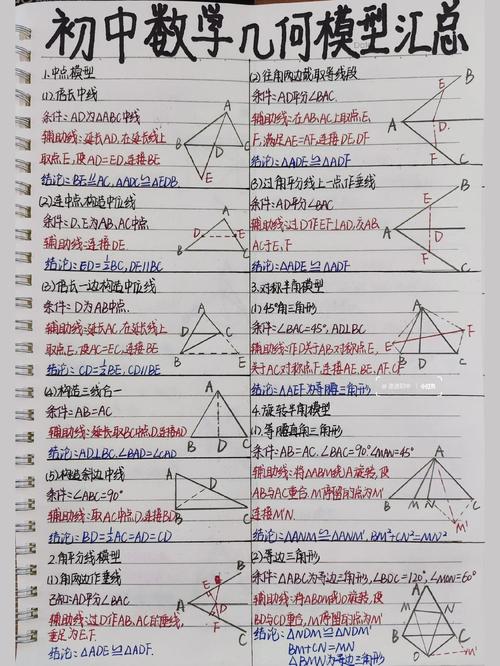 初中数学几何模型汇总
1.中点模型
(1).倍长中线
条件:AD为△ABC中线
辅助线:延长AD,在延长线上
取点E,使AD=ED,连接BE
结论:BE⫽AC,△ADC≌△EDB.
A
B
D
C
E
(2)连中点,构造中位线
条件:D、E为AB、AC中点
辅助线:连接DE.
结论:ED=½BC,DE//BC
A
D
E
B
C
(3)倍长一边构造中位线
条件:D为AB中点.
辅助线:延长AC,在延长线上
取点E,使AC=EC,连接BE
结论:CD=½BE,CD//BE
A
D
C
B
E
(4)构造三线合一
条件:AB=AC
辅助线:延长取BC中点,D,连接AD
结论:AD⊥BC,∠BAD=∠CAD
A
B
D
C
(5)构造斜边中线
条件:∠ABC=90°
辅助线:取AC中点D,连接BD
结论:BD=½AC=AD=CD
A
D
B
C
2.角平分线模型
(1)角两边作垂线
已知:AD平分∠BAC
辅助线:过D作AB,AC的垂线,
垂足为E.F.
结论:△ADE≌△ADF.
B
E
A
D
F
C
(2)往角两边截取等线段
条件:AD平分∠BAC.
辅助线:在AB、AC上取点E,
F,满足AE=AF,连接DE,DF
结论:△ADE≌△ADF
B
E
A
D.
F
C
(3)过角平分线上一点,作垂线
条件:AD平分∠BAC
辅助线:过D作EF⊥AD,交AB,
AC于E、F
结论:△ADE≌△ADF
B
E
A
D
F
C
3.对称半角模型
(1)45°角三角形
条件:∠BAC=45°,AD⊥BC
辅助线:作D关于AB对称点E,
关于AC对称点F,连接AE,BE,AF,CF
结论:△AEF为等腰三角形
A
F
E
B
D
C
小红书
4.旋转半角模型
(1).等腰直角三角形
条件:AB=AC.∠BAC=90°∠MAN=45°
辅助线:将△ABM绕A旋转,使
AB与AC重合,M所图的点为M'
连接M'N.
结论:△ANM≌△ANM',BM²+CN²=MN²
A
B
M
N
C
M'
(2)等边三角形
条件:△ABC为等边三角形,∠BDC=120°,∠MDN=60°
辅助线:将△BDM绕D旋转,使
BD与CD重合,M所图的点为M'
结论:△NDM≌△NDM'
BM+CN=MN
△BMN为等边三角形
A
M
N
B
C
D
M'